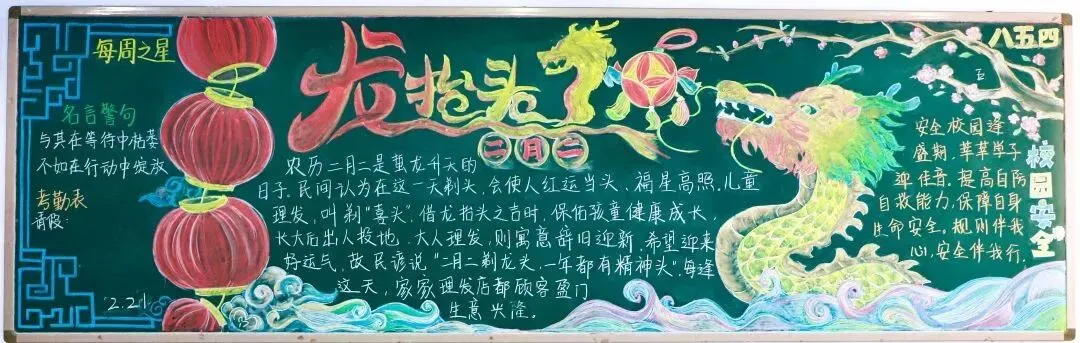 每周之星
名言警句
与其在等待中枯萎
不如在行动中绽放
考勤表
请假:
2.21
龙抬头
二月二
农历二月二是蛰龙升天的
日子.民间认为在这一天剃头,会使人红运当头、福星高照.儿童
理发,叫剃"喜头",借龙抬头之吉时,保佑孩童健康成长,
长大后出人投地.大人理发,则寓意辞旧迎新,希望迎来
好运气,故民谚说"二月二剃龙头,一年都有精神头".每逢
这天,家家理发店都顾客盈门
生意兴隆。
八五四
校园安全
安全校园逢
盛期,莘莘学子
迎佳音.提高自防
自救能力,保障自身
生命安全。规则伴我
心,安全伴我行.